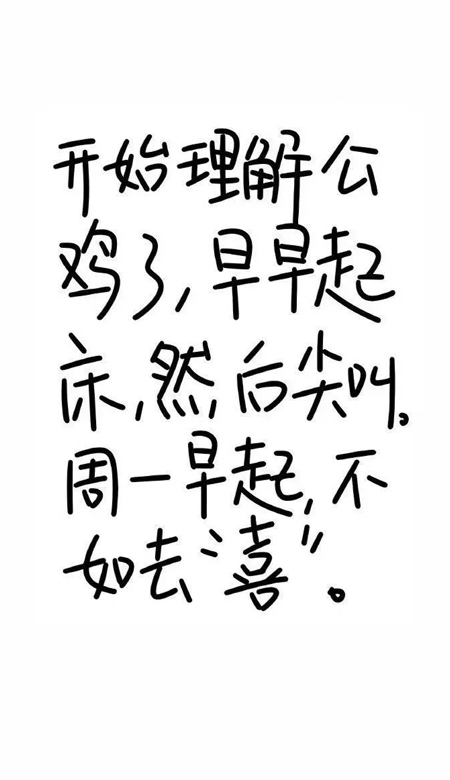 开始理解公
鸡了,早早起
床,然后尖叫。
周一早起,不
如去“喜”。